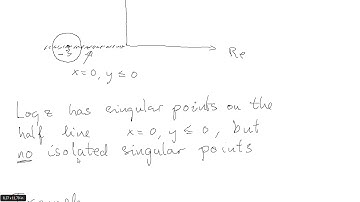 -3
Re
x=0, y ≤ 0
Log z has singular points on the
half line x=0, y ≤ 0, but
no isolated singular points
Example